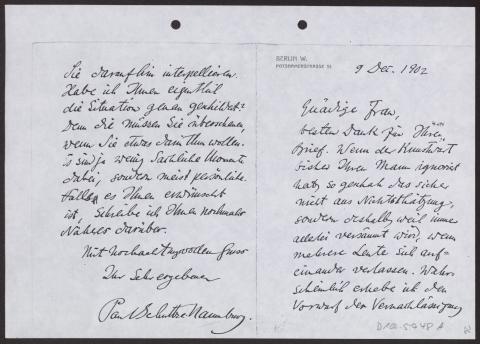 BERLIN W.
POTSDAMERSTRASSE
9 Dec. 1902
Gnädige Frau,
besten Dank für Ihren
Brief. Wenn der Kunstwart
bisher Ihren Mann ignoriert
hat, so geschah das sicher
nicht aus Nichtschätzung,
sondern deshalb, weil immer
allerlei versäumt wird, wenn
mehrere Leute sich auf-
einander verlassen. Wahr-
scheinlich erhebe ich den
Vorwurf der Vernachlässigung
Sie daraufhin interpellieren.
Habe ich Ihnen eigentlich
die Situation genau geschildert?
Denn die müssen Sie übersehen,
wenn Sie etwas darin thun wollen.
Es sind ja wenig sachliche Momente
dabei, sondern meist persönliche.
Falls es Ihnen erwünscht
ist, schreibe ich Ihnen nochmals
Näheres darüber.
Mit hochachtungsvollem Gruss
Ihr sehr ergebener
Paul Schultze Naumburg.